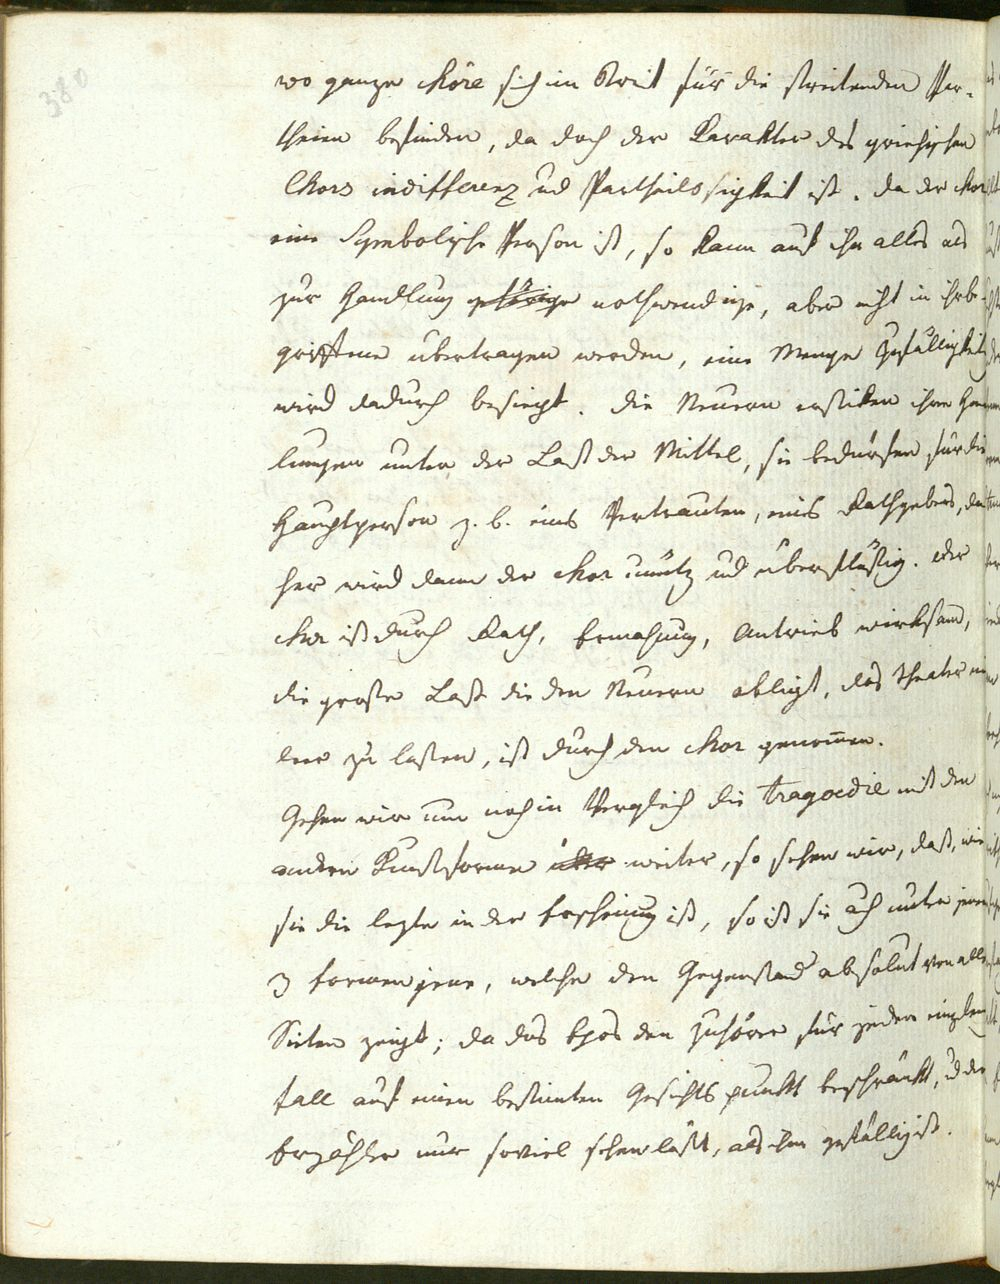 380
wo ganze chöre sich im Streit für die streitenden Par-
theien befinden, da doch der Karakter des griechischen
Chors indifferenz und Partheilosigkeit ist. da der chor
eine Symbolische Person ist, so kann auf ihn alles als
zur Handlung gehörige nothwendige, aber nicht in ihr be-
griffene übertragen werden, eine Menge Zufälligkeit
wird dadurch besiegt. die Neuern erstiken ihre Hand
lungen unter der Last der Mittel, sie bedürfen für die
Hauptperson z. b. eines Vertrauten, eines Rathgebers, da
her wird dann der chor unnütz und überflüßig. der
chor ist durch Rath, Ermahnung, Antrieb wirksam,
die große Last die den Neuern obligt, das Theater nie
leer zu laßen, ist durch den chor genommen.
Gehen wir nun noch in Vergleich die tragoedie mit den
andern Kunstformen weiter, so sehen wir, daß, wie
sie die lezte in der Erscheinung ist, so ist sie auch unter jenen
3 formen jene, welche den Gegenstand absolut von allen
Seiten zeigt; da das Epos den Zuhörer für jeden einzelnen
fall auf einen bestimten Gesichtspunkt beschränkt, und der
Erzähler nur soviel sehen läßt, als ihm gefällig ist.